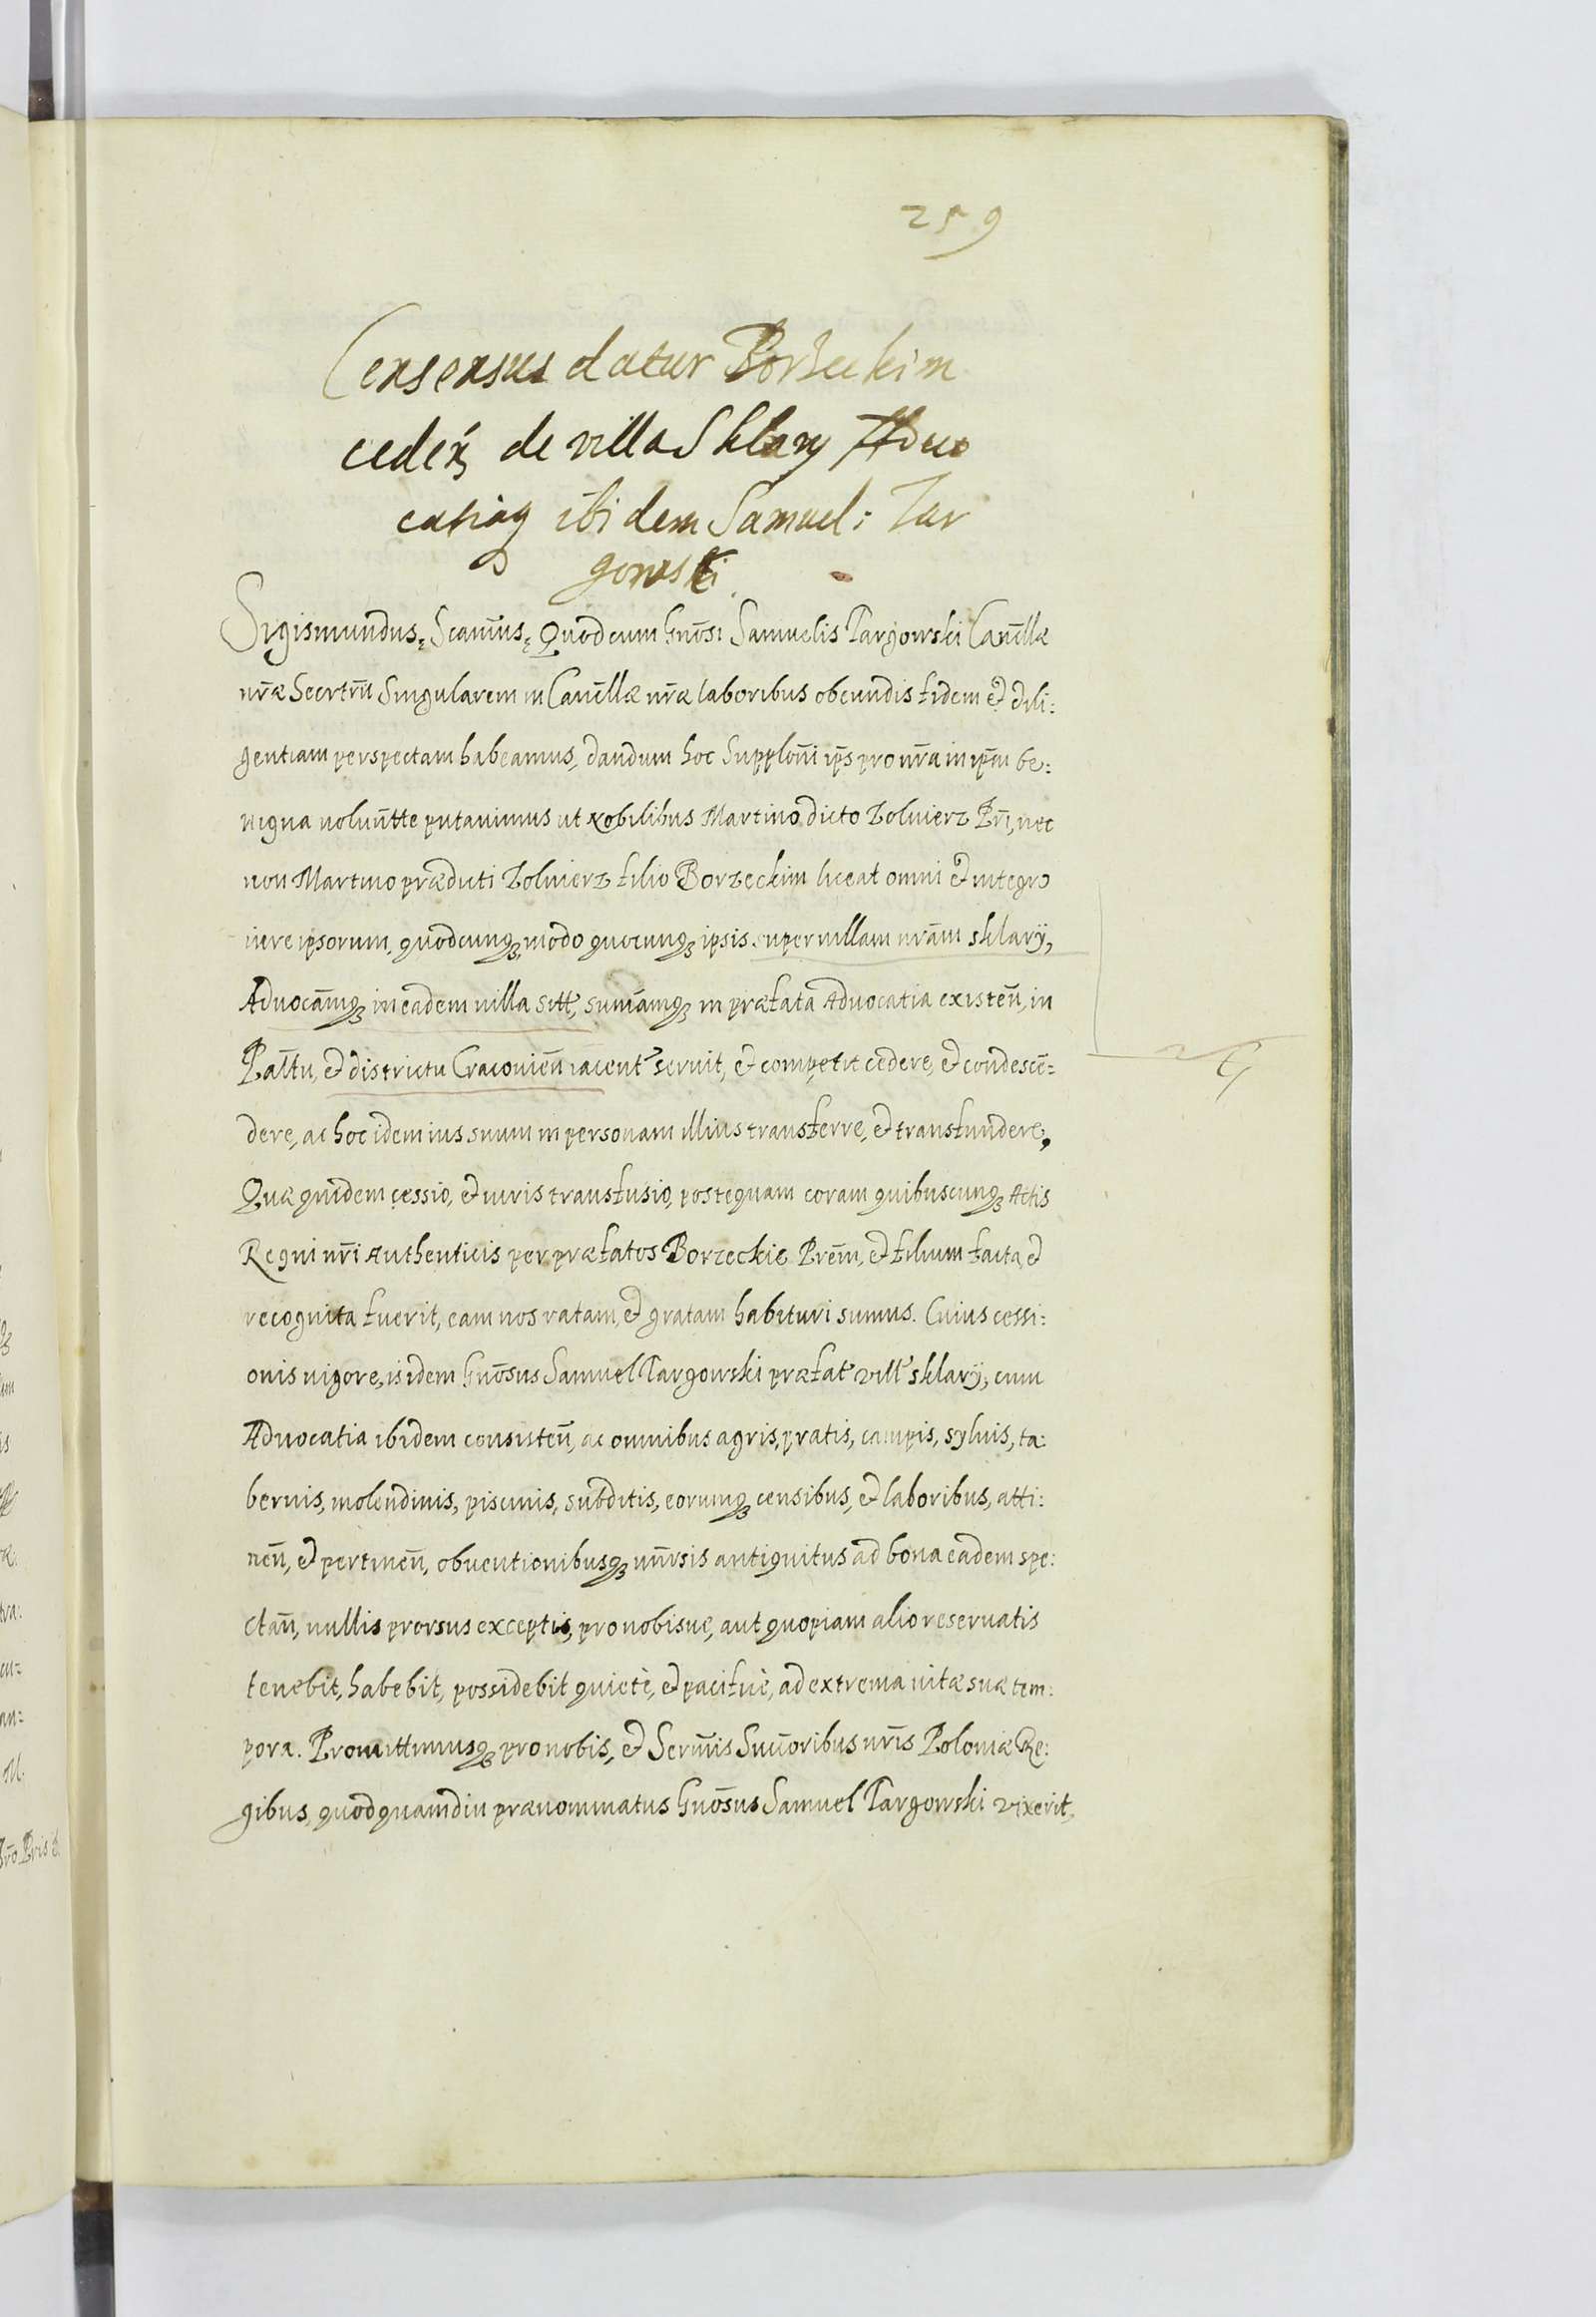 259
Consensus datur Borzeckim
ceden de villa Sklary Advo
catiaq ibidem Samuel: Tar
gowski
Sigismundus, Scanius, Quod cum Gnosi Samuelis Targowski Cancllæ
nræ Secrtrii Singularem in Cancllæ nræ laboribus obeundis fidem et dili:
gentiam perspectam habeamus, dandum hoc Supploni ips pro nra in ipm be:
nigna voluntte putavimus ut Nobilibus Martino dicto Zolnierz Pri, nec
non Martino prædicti Zolnierz filio Borzeckim liceat omni et integro
iure ipsorum, quodcunq, modo quocunq ipsis super villam nram Sklary,
Advocamq in eadem villa sitt, sumamq in præfata Advocatia existen, in
Pallttu, et districtu Cracovien iacent servit, et competit cedere, et condescē=
dere, ac hoc idem ius suum in personam illius transferre, et transfundere,
Quæ quidem cessio, et iuris transfusio, postequam coram quibuscunq Actis
Regni nri Authenticis per præfatos Borzeckie Prem, et filium facta, et
recognita fuerit, eam nos ratam, et gratam habituri sumus. Cuius cessi:
onis vigore, isidem Gnosus Samuel Targowski præfat vill Sklary, cum
Advocatia ibidem consisten, ac omnibus agris, pratis, campis, sylvis, ta:
bernis, molendinis, piscinis, subditis, eorumq censibus, et laboribus, atti:
nen, et pertinen, obventionibusq unrsis antiquitus ad bona eadem spe:
ctan, nullis prorsus exceptis, pro nobisve, aut quopiam alio reservatis
tenebit, habebit, possidebit quietè, et pacificè, ad extrema vitæ suæ tem:
pora. Promittimusq pro nobis, et Sermis Succoribus nris Poloniæ Re:
gibus, quod quamdiu prænominatus Gnosus Samuel Targowski vixerit,